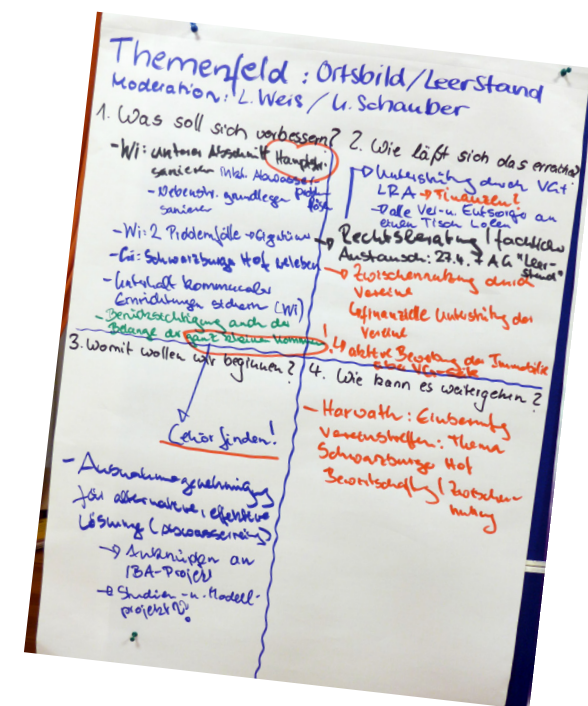 Themenfeld: Ortsbild/Leerstand
Moderation: L. Weis / U. Schauber
1. Was soll sich verbessern?
- Wi: unterer Abschnitt Hauptstr.
sanieren inkl. Abwasser-
- Nebenstr. grundlegen
sanieren
- Wi: 2 Problemfälle → Eigentümer
- Gi: Schwarzburger Hof beleben
- Unterhalt kommunaler
Einrichtungen sichern (Wi)
- Berücksichtigung auch der
Belange der ganz kleinen Kommunen!
2. Wie läßt sich das erreichen?
→ Unterstützung durch VGt
LRA → Finanzen?
→ alle Ver- u. Entsorger an
einen Tisch holen
→ Rechtsberatung / fachlicher
Austausch: 27.4. → AG "Leer-
stand"
→ Zwischennutzung durch
Vereine
↳ finanzielle Unterstützung der
Vereine
↳ aktive Bewerbung der Immobilie
über VGen-Seite
3. Womit wollen wir beginnen?
Gehör finden!
- Ausnahmegenehmigung
für alternative, effektive
Lösung (Abwasserreinig)
→ Anknüpfen an
IBA-Projekt
→ Studien- u. Modell-
projekt?
4. Wie kann es weitergehen?
- Horvath: Einberufung
Vereinstreffen: Thema
Schwarzburger Hof
Bewirtschaftung / Zwischen-
nutzung